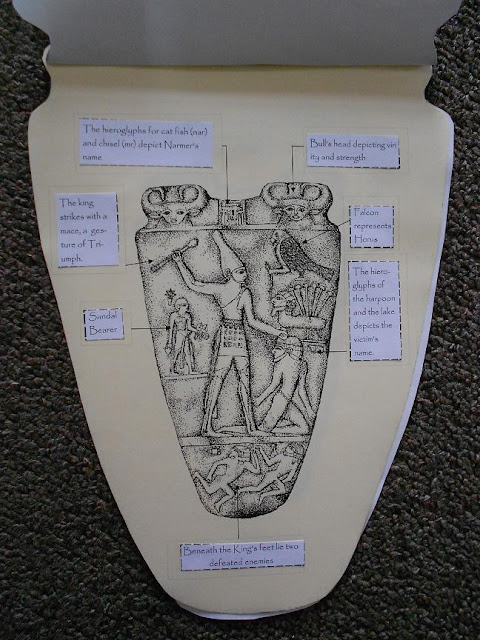 The hieroglyphs for cat fish (nar)
and chisel (mr) depict Narmer's
name
Bull's head depicting viri
ity and strength
The king
strikes with a
mace, a ges-
ture of Tri-
umph.
Falcon
represents
Horus
The hiero-
glyphs of
the harpoon
and the lake
depicts the
victim's
name.
Sandal
Bearer
Beneath the King's feet lie two
defeated enemies